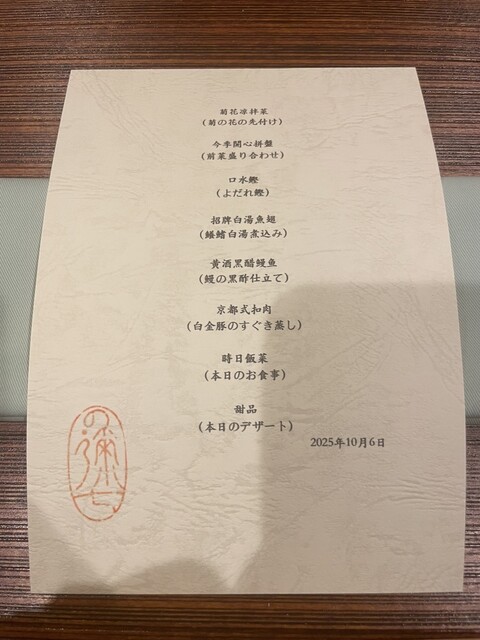 菊花凉拌菜
(菊の花の先付け)
今季開心拼盤
(前菜盛り合わせ)
口水鰹
(よだれ鰹)
招牌白湯魚翅
(鱶鰭白湯煮込み)
黄酒黒醋鳗鱼
(鰻の黒酢仕立て)
京都式扣肉
(白金豚のすぐき蒸し)
時日飯菜
(本日のお食事)
甜品
(本日のデザート)
2025年10月6日
の弥七